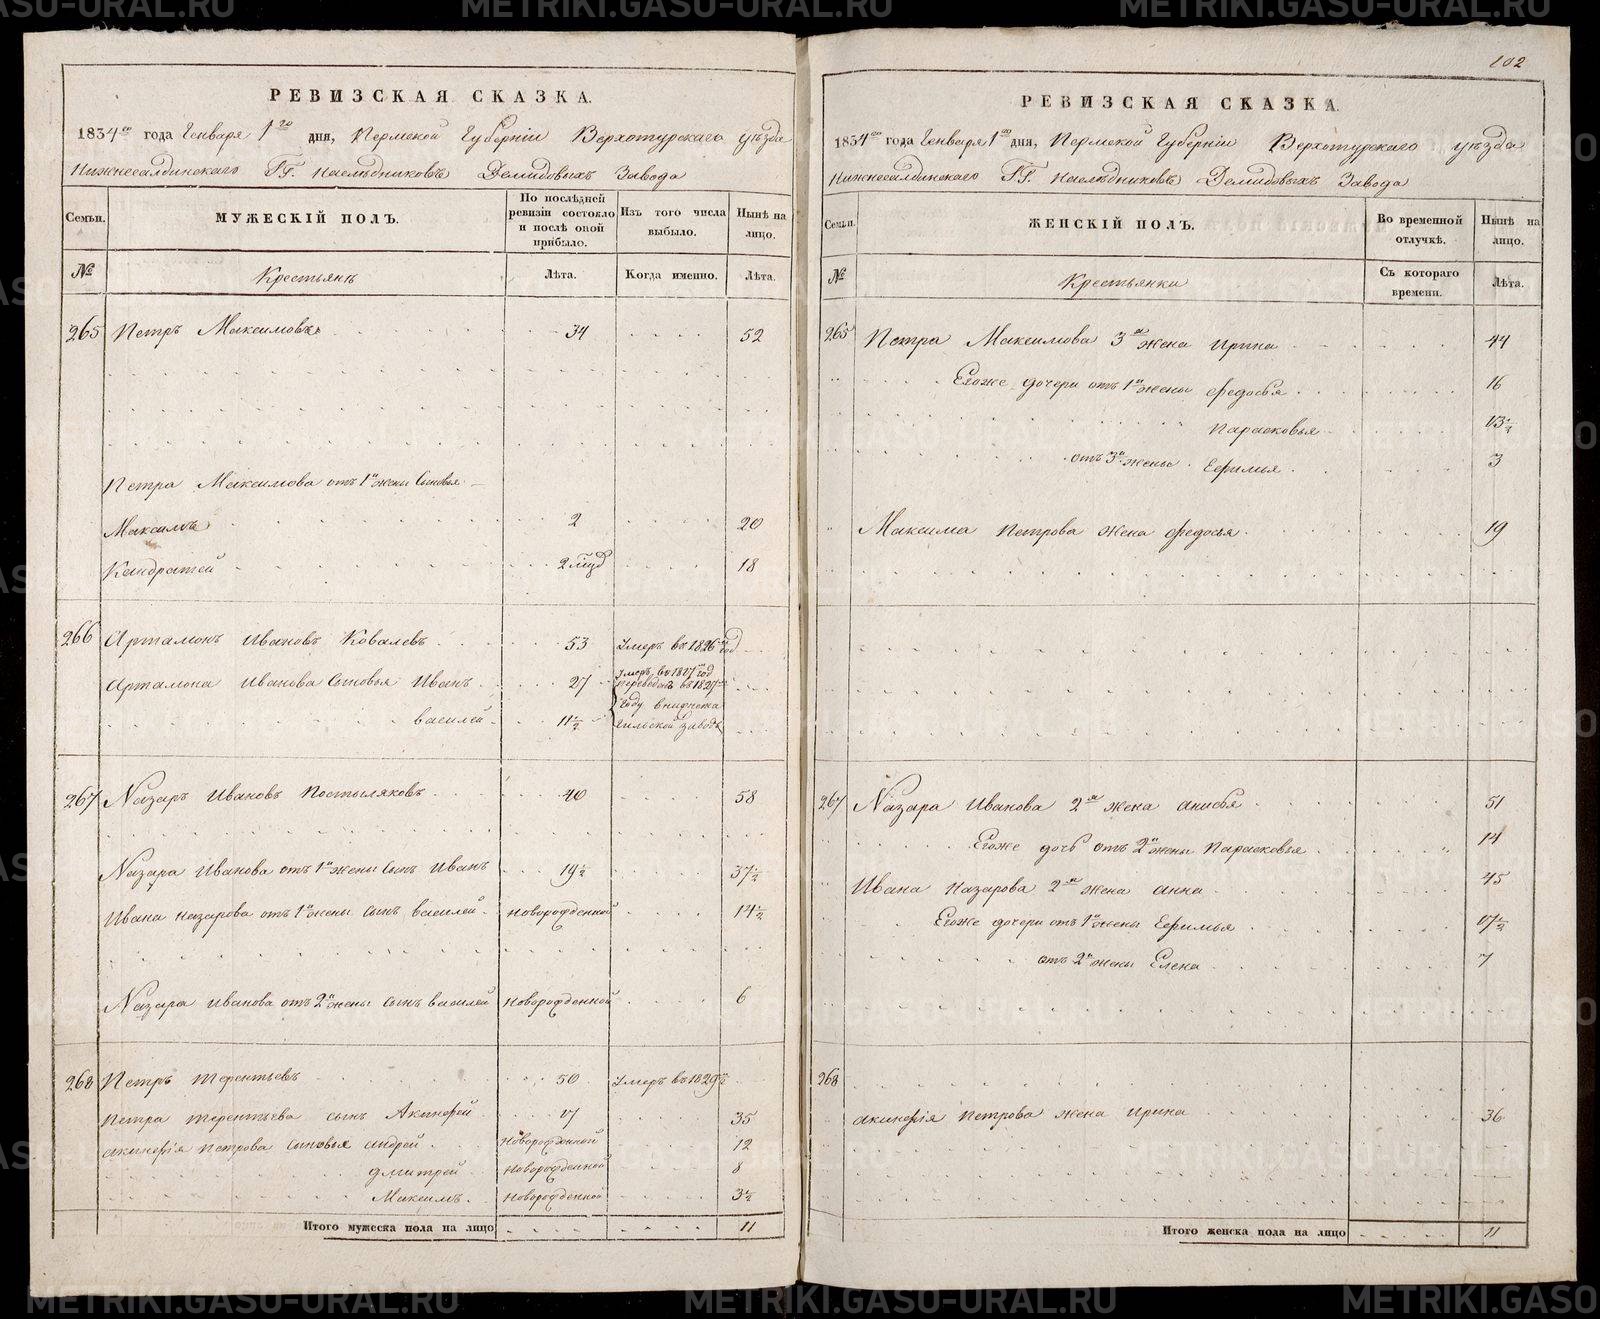 РЕВИЗСКАЯ СКАЗКА.
1834го года Генваря 1го дня, Пермской Губернiи Верхотурскаго уѣзда
Нижнесалдинскаго ГГ. Наслѣдниковъ Демидовыхъ Завода
Семьи. МУЖЕСКIЙ ПОЛЪ. По послѣдней ревизiи состояло и послѣ оной прибыло. Изъ того числа выбыло. Нынѣ на лицо.
№ Крестьянъ Лѣта. Когда именно. Лѣта.
265 Петръ Максимовъ 34 52
Петра Максимова отъ 1й жены Сыновья
Максимъ 2 20
Кандратей 2 18
266 Артамонъ Ивановъ Ковалевъ 53 Умеръ въ 1826 год
Артамона Иванова Сыновья Иванъ 27 Умеръ въ 1827 год
василей 11½ переведенъ въ 1827
году в нижнета
гильской заводъ
267 Назаръ Ивановъ Постыляковъ 40 58
Назара Иванова отъ 1й жены Сынъ Иванъ 19½ 37½
Ивана назарова отъ 1й жены сынъ василей новорожденной 14½
Назара Иванова отъ 2й жены сынъ василей новорожденной 6
268 Петръ терентьевъ 50 Умеръ въ 1829
Петра терентьева сынъ Акинфей 17 35
акинфiя петрова сыновья андрей новорожденной 12
дмитрей новорожденной 8
Максимъ новорожденной 3½
Итого мужеска пола на лицо 11
102
РЕВИЗСКАЯ СКАЗКА.
1834го года Генваря 1го дня, Пермской Губернiи Верхотурскаго уѣзда
Нижнесалдинскаго ГГ. Наслѣдниковъ Демидовыхъ Завода
Семьи. ЖЕНСКIЙ ПОЛЪ. Во временной отлучкѣ. Нынѣ на лицо.
№ Крестьянки Съ котораго времени. Лѣта.
265 Петра Максимова 3я жена Ирина 44
Егоже дочери отъ 1й жены федосья 16
Парасковья 13½
отъ 3й жены Ефимья 3
Максима петрова жена федосья 19
267 Назара Иванова 2я жена анисья 51
Егоже дочь отъ 2й жены Парасковья 14
Ивана назарова 2я жена анна 45
Егоже дочери отъ 1й жены Ефимья 17½
отъ 2й жены Елена 7
268
акинфiя петрова жена ирина 36
Итого женска пола на лицо 11
METRIKI.GASO-URAL.RU